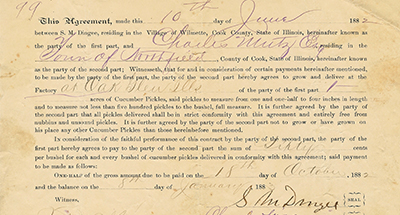 99
This Agreement, made this 10th day of June 188
between S. M. Dingee, residing in the Village of Wilmette, Cook County, State of Illinois, hereinafter known as
the party of the first part, and Charles residing in the
Town of County of Cook, State of Illinois, hereinafter known as
the party of the second part; Witnesseth, that for and in consideration of certain payments hereinafter mentioned,
to be made by the party of the first part, the party of the second part hereby agrees to grow and deliver at the
Factory at of the party of the first part 1
acres of Cucumber Pickles, and pickles to measure from one and one-half to four inches in length
and to measure not less than five hundred pickles to the bushel, full measure. It is further agreed by the party of
the second part that all pickles delivered shall be in strict conformity with this agreement and entirely free from
nubbins and unsound pickles. It is further agreed by the party of the second part not to grow or have grown on
his place any other Cucumber Pickles than those hereinbefore mentioned.
In consideration of the faithful performance of this contract by the party of the second part, the party of the
first part hereby agrees to pay to the party of the second part the sum of cents
per bushel for each and every bushel of cucumber pickles delivered in conformity with this agreement; said payment
to be made as follows:
One-half of the gross amount due to be paid on the 18 of October 188
and the balance on the 8th January 188
Witness, S M Dingee SEAL